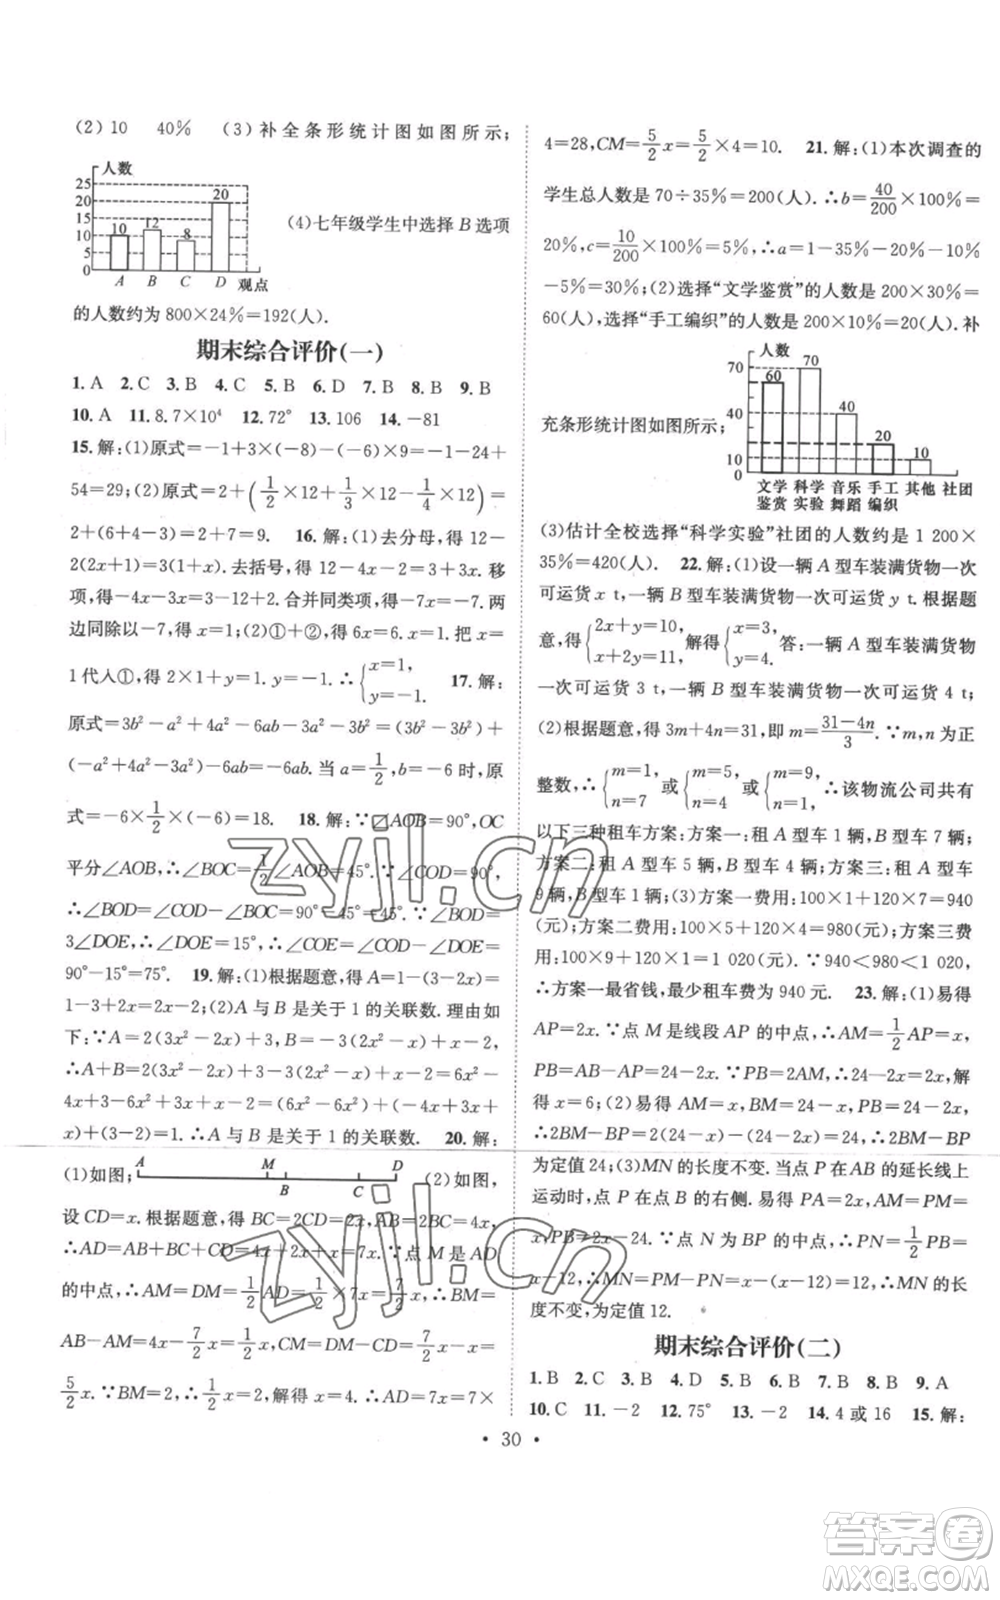 (2) 10　40%　(3)补全条形统计图如图所示;
人数
25
20
15
10
5
0
10
12
8
20
A B C D 观点
(4)七年级学生中选择 B 选项
的人数约为 800×24%=192(人).
期末综合评价(一)
1. A　2. C　3. B　4. C　5. B　6. D　7. B　8. B　9. B
10. A　11. 8.7×10⁴　12. 72°　13. 106　14. -81
15. 解:(1)原式=-1+3×(-8)-(-6)×9=-1-24+
54=29;(2)原式=2+(1/2×12+1/3×12-1/4×12)=
2+(6+4-3)=2+7=9.　16. 解:(1)去分母,得 12-
2(2x+1)=3(1+x). 去括号,得 12-4x-2=3+3x. 移
项,得-4x-3x=3-12+2. 合并同类项,得-7x=-7. 两
边同除以-7,得 x=1;(2)①+②,得 6x=6. x=1. 把 x=
1 代人①,得 2×1+y=1. y=-1. ∴{x=1, y=-1.　17. 解:
原式=3b²-a²+4a²-6ab-3a²-3b²=(3b²-3b²)+
(-a²+4a²-3a²)-6ab=-6ab. 当 a=1/2,b=-6 时,原
式=-6×1/2×(-6)=18.　18. 解:∵∠AOB=90°,OC
平分∠AOB,∴∠BOC=1/2∠AOB=45°. ∵∠COD=90°,
∴∠BOD=∠COD-∠BOC=90°-45°=45°. ∵∠BOD=
3∠DOE,∴∠DOE=15°,∴∠COE=∠COD-∠DOE=
90°-15°=75°.　19. 解:(1)根据题意,得 A=1-(3-2x)=
1-3+2x=2x-2;(2)A 与 B 是关于 1 的关联数. 理由如
下:∵A=2(3x²-2x)+3,B=-2(3x²-x)+x-2,
∴A+B=2(3x²-2x)+3-2(3x²-x)+x-2=6x²-
4x+3-6x²+2x+x-2=(6x²-6x²)+(-4x+3x+
x)+(3-2)=1. ∴A 与 B 是关于 1 的关联数.　20. 解:
(1)如图;
A M D
B C
(2)如图,
设 CD=x. 根据题意,得 BC=2CD=2x,AB=2BC=4x,
∴AD=AB+BC+CD=4x+2x+x=7x. ∵点 M 是 AD
的中点,∴AM=DM=1/2AD=1/2×7x=7/2x,∴BM=
AB-AM=4x-7/2x=1/2x,CM=DM-CD=7/2x-x=
5/2x. ∵BM=2,∴1/2x=2,解得 x=4. ∴AD=7x=7×
4=28,CM=5/2x=5/2×4=10.　21. 解:(1)本次调查的
学生总人数是 70÷35%=200(人). ∴b=40/200×100%=
20%,c=10/200×100%=5%,∴a=1-35%-20%-10%
-5%=30%;(2)选择“文学鉴赏”的人数是 200×30%=
60(人),选择“手工编织”的人数是 200×10%=20(人). 补
充条形统计图如图所示;
人数
70
60
40
20
10
0
60
70
40
20
10
文学 科学 音乐 手工 其他 社团
鉴赏 实验 舞蹈 编织
(3)估计全校选择“科学实验”社团的人数约是 1 200×
35%=420(人).　22. 解:(1)设一辆 A 型车装满货物一次
可运货 x t,一辆 B 型车装满货物一次可运货 y t. 根据题
意,得{2x+y=10, x+2y=11,解得{x=3, y=4.答:一辆 A 型车装满货物
一次可运货 3 t,一辆 B 型车装满货物一次可运货 4 t;
(2)根据题意,得 3m+4n=31,即 m=(31-4n)/3. ∵m,n 为正
整数,∴{m=1, n=7或{m=5, n=4或{m=9, n=1. ∴该物流公司共有
以下三种租车方案:方案一:租 A 型车 1 辆,B 型车 7 辆;
方案二:租 A 型车 5 辆,B 型车 4 辆;方案三:租 A 型车
9 辆,B 型车 1 辆;(3)方案一费用:100×1+120×7=940
(元),方案二费用:100×5+120×4=980(元),方案三费用:
100×9+120×1=1 020(元). ∵940<980<1 020,
∴方案一最省钱,最少租车费为 940 元.　23. 解:(1)易得
AP=2x. ∵点 M 是线段 AP 的中点,∴AM=1/2AP=x,
PB=AB-AP=24-2x. ∵PB=2AM,∴24-2x=2x,解
得 x=6;(2)易得 AM=x,BM=24-x,PB=24-2x,
∴2BM-BP=2(24-x)-(24-2x)=24,∴2BM-BP
为定值 24;(3)MN 的长度不变. 当点 P 在 AB 的延长线上
运动时,点 P 在点 B 的右侧. 易得 PA=2x,AM=PM=
x,PB=2x-24. ∵点 N 为 BP 的中点,∴PN=1/2PB=
x-12,∴MN=PM-PN=x-(x-12)=12,∴MN 的长
度不变,为定值 12.
期末综合评价(二)
1. B　2. C　3. B　4. D　5. B　6. D　7. B　8. B　9. A
10. C　11. -2　12. 75°　13. -2　14. 4 或 16　15. 解:
• 30 •
zyjl.cn
zyjl.cn
答案圈
MXQE.COM